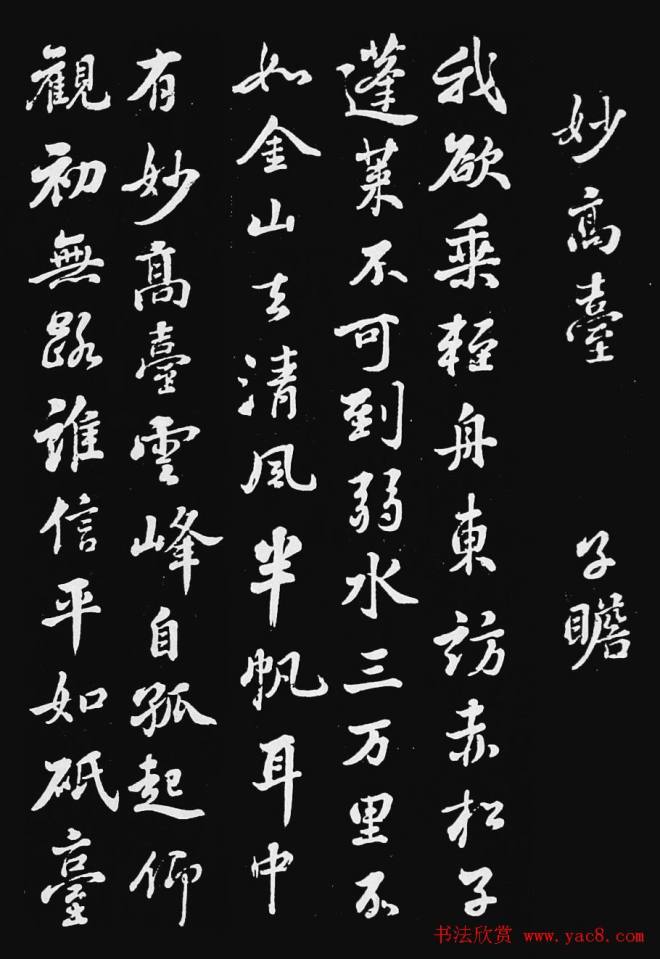 妙高臺 子瞻
我欲乘輕舟東訪赤松子
蓬萊不可到弱水三万里不
如金山去清風半帆耳中
有妙高臺雲峰自孤起仰
觀初無路誰信平如砥臺
书法欣赏 www.yac8.com